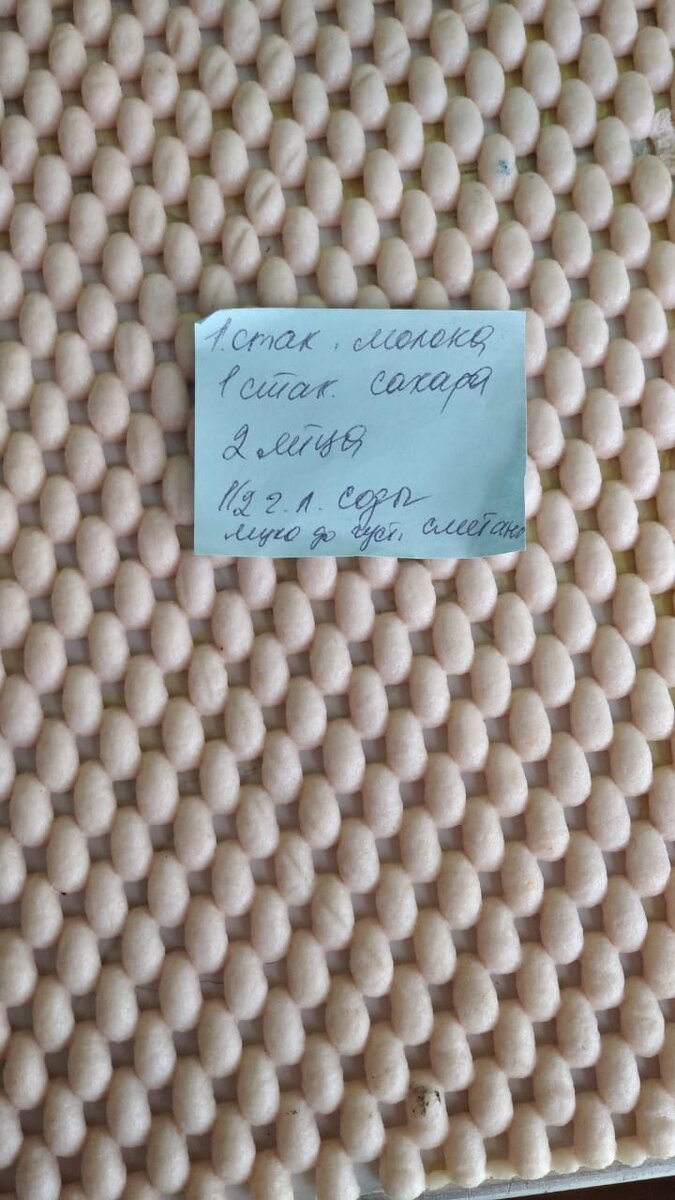 1. стак. молока
1 стак. сахара
2 яйца
1/2 г. л. соды
муко до густ. сметаны